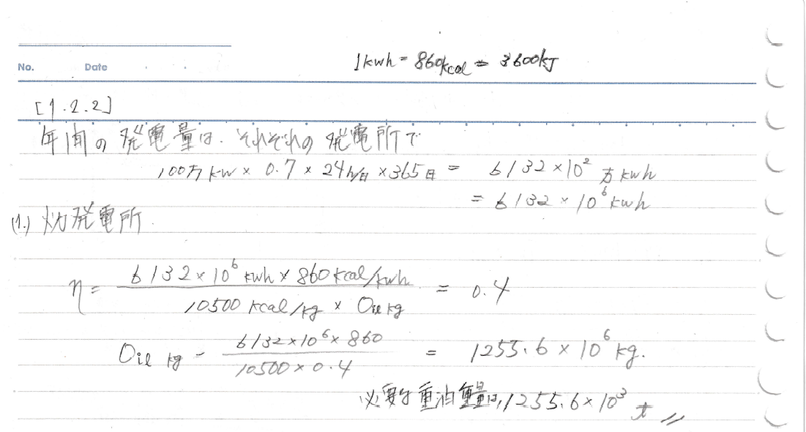 1kwh = 860kcal = 3600kJ
No. Date
[1.2.2]
年间の発電量は、それぞれの発電所で
100万kw × 0.7 × 24h/日 × 365日 = 6132×10² 万kwh
= 6132×10⁶ kwh
(1.) 火力発電所
η = 6132×10⁶ kwh × 860kcal/kwh / 10500 kcal/kg × Oil kg = 0.4
Oil kg = 6132×10⁶×860 / 10500×0.4 = 1255.6×10⁶ kg.
必要な重油重量は、1255.6×10³ t